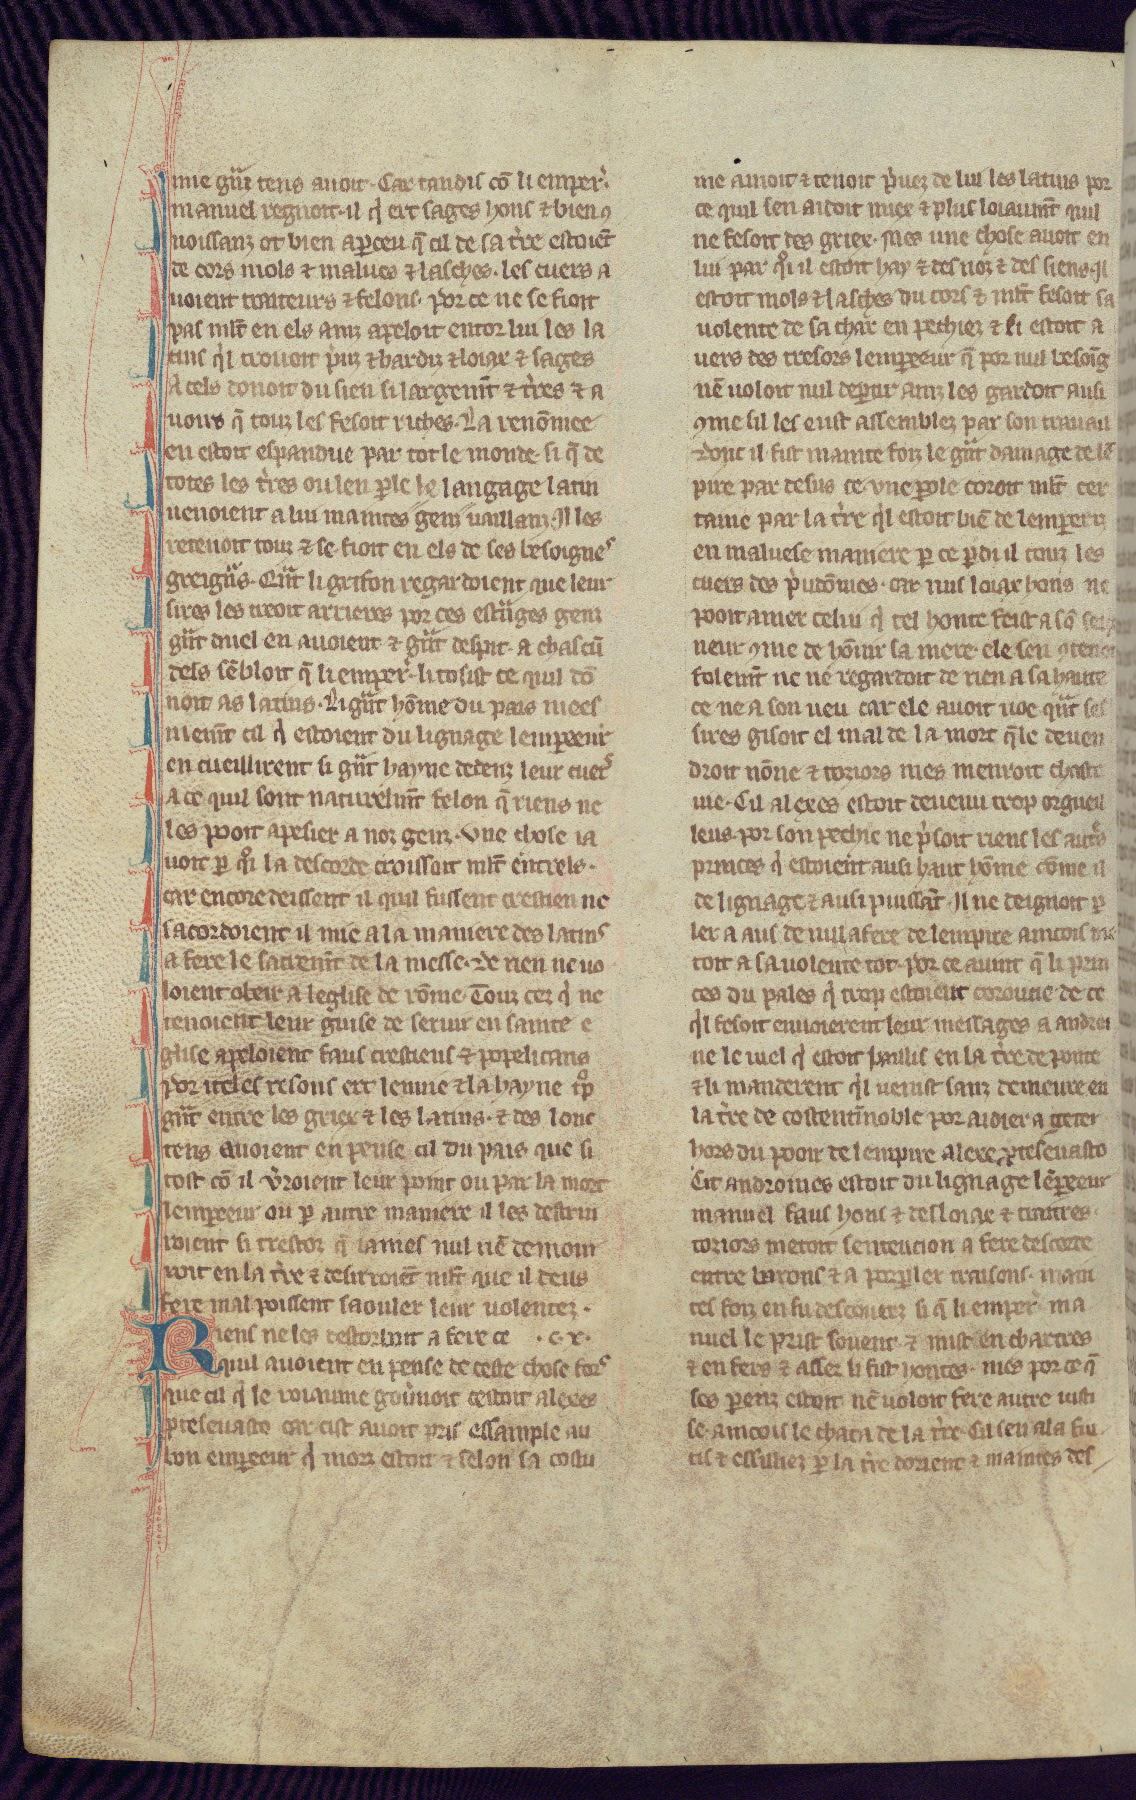 mie gũt tens auoit. Car tandis cõ li emper̉.
manuel regnoit. il q̉ ert sages hons ⁊ bien ꝯ
noissanz ot bien aꝑceu q̃ cil de sa t̉re estoiẽt
de cors mols ⁊ malues ⁊ lasches. les cuers a
uoient traiteurs ⁊ felons. por ce ne se fioit
pas ml̃t en els ainz apeloit entor lui les la
tins q̉l trouoit p̉uz ⁊ hardiz ⁊ loiax ⁊ sages
A cels donoit du sien si largem̃t ⁊ t̉res ⁊ a
uoirs q̃ touz les fesoit riches. La renõmee
en estoit espandue par tot le monde. si q̃ de
totes les t̉res ou len ꝑle le langage latin
uenoient a lui maintes genz uaillanz. Il les
retenoit touz ⁊ se fioit en els de ses besoignes
greign̉s. Qũt li grifon regardoient que leur
sires les metoit arrieres por ces estũges genz
gũt duel en auoient ⁊ gũt despit. a chascũ
dels sẽbloit q̃ li emper̉. li tosist ce quil dõ
noit as latins. Li gũt hõme du pais mees
mem̃t cil q̉ estoient du lignage lempereeur
en cueillirent si gũt hayne dedenz leur cuers
A ce quil sont naturelm̃t felon q̃ riens ne
les pooit apesier a noz genz. Vne chose ia
uoit ꝑ q̉i la descorde croissoit ml̃t entrels.
car encore deissent il quil fussent crestien ne
sacordoient il mie a la maniere des latins
a fere le sacrem̃t de la messe. De rien ne uo
loient obeir a leglise de rõme. Touz cez q̉ ne
tenoient leur guise de seruir en sainte e
glise apeloient faus crestiens ⁊ popelicans
por iteles resons ert lenuie ⁊ la hayne tp̉
gũt entre les griex ⁊ les latins. ⁊ des lonc
tens auoient en pense cil du pais que si
tost cõ il v̉roient leur point ou par la mort
lempereeur ou ꝑ autre maniere il les destrui
roient si trestoz q̃ iames nul riẽ demour
roit en la t̉re ⁊ desirroiẽt ml̃t que il deus
fere mal poissent saouler leur uolentez.
Riens ne les destorboit a fere ce .c. x.
quil auoient en pense de ceste chose fors
que cil q̉ le roiaume goủnoit cestoit alexes
ꝓteseuasto car cist auoit pris essample au
bon empereeur q̉ morz estoit ⁊ selon sa coustu
me amoit ⁊ tenoit p̉uez de lui les latins por
ce quil sen aidoit miex ⁊ plus loiaum̃t quil
ne fesoit des griex. Mes une chose auoit en
lui par q̉i il estoit hay ⁊ des noz ⁊ des siens. Il
estoit mols ⁊ lasches du cors ⁊ ml̃t fesoit sa
uolente de sa char en pechiez ⁊ si estoit a
uers des tresors lempereeur q̃ por nul besoīg
nẽ uoloit nul departir ainz les gardoit ausi
ꝯme sil les eust assemblez par son trauail
donc il fist mainte foiz le gũt damage de lẽ
pire par desus ce. Vne ꝑole coroit ml̃t cer
taine par la t̉re q̉l estoit biẽ de lempereriz
en maluese maniere ꝑ ce ꝑdi il touz les
cuers des p̉udõmes. car nus loiax hons ne
pooit amer celui q̉ tel honte feist a sõ sei
neur ꝯme de hõnir sa mere. ele sen ꝯtenoit
folem̃t ne ne regardoit de rien a sa hautes
ce ne a son ueu car ele auoit uoe qũt ses
sires gisoit el mal de la mort q̃le deuen
droit nõne ⁊ toziors mes menroit chaste
uie. Cil alexes estoit deuenu trop orgueil
leus. por son pechie ne p̉soit riens les aut̉s
princes q̉ estoient ausi haut hõme cõme il
de lignage ⁊ ausi puissãt. Il ne deignoit ꝑ
ler a aus de nul afere de lempire aincois me
toit a sa uolente tot. por ce auint q̃ li prin
ces du pales q̉ trop estoient coroucie de ce
q̉l fesoit enuoierent leur messages a andro
ne le uiel q̉ estoit baillis en la t̉re de ponte
⁊ li manderent q̉l uenist sanz demeure en
la t̉re de costentĩnoble por aidier a geter
hors du pooir de lempire alexe ꝓtesevasto
Cit andronies estoit du lignage lẽpereeur
manuel faus hons ⁊ desloiax ⁊ traitres.
toziors metoit sentencion a fere descorde
entre barons ⁊ a porꝑler traisons. main
tes foiz en fu descouuerz si q̃ li emper̉. ma
nuel le prist souent. ⁊ mist en chartres
⁊ en fers ⁊ assez li fist hontes. mes por ce q̃
ses parenz estoit nẽ uoloit fere autre iusti
se. aincois le chaca de la t̉re. Cil sen ala fui
tis ⁊ essilliez ꝑ la t̉re dorient ⁊ maintes des